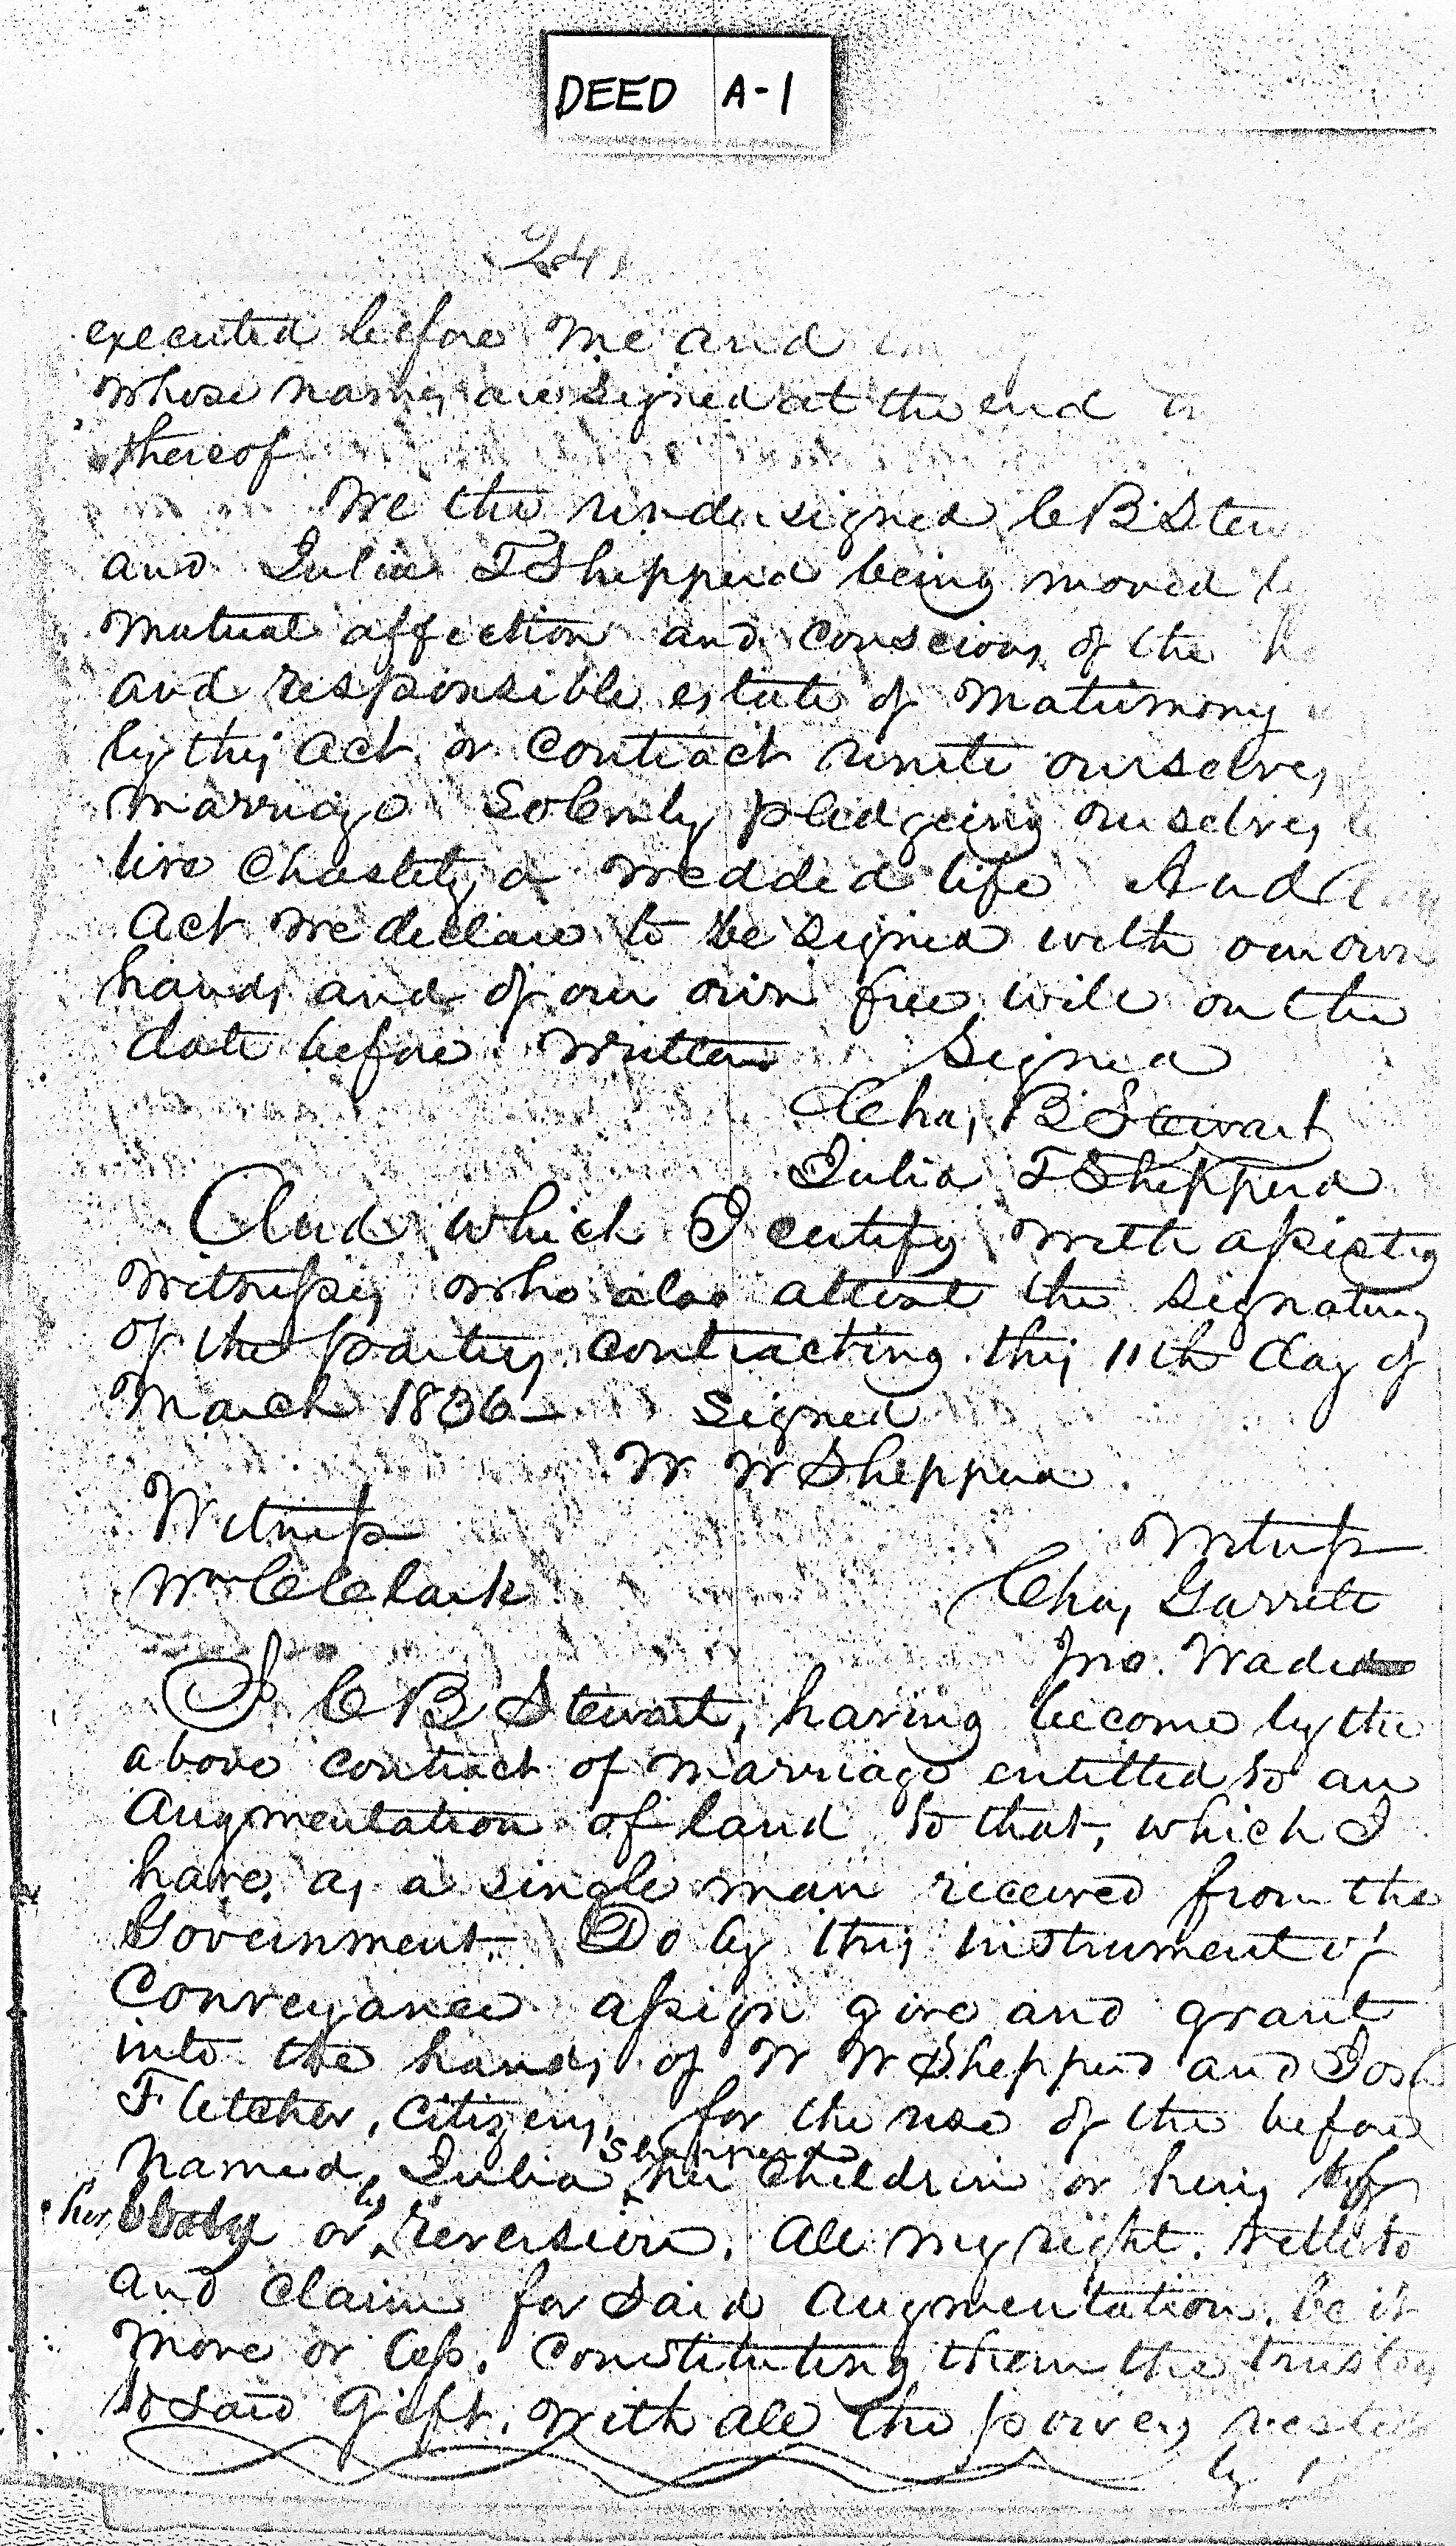 DEED A-1
24
executed before me and
whose names are signed at the end
thereof
We the undersigned C B Stew
and Julia T Shepperd being moved
mutual affection and conscious of the
and responsible estate of Matrimony
by this act or contract unite ourselves
marriage Solemnly pledgeing ourselves
live Chastely a wedded life And
Act we declare to be signed with our own
hands and of our own free will on the
date before written Signed
Chas, B Stewart
Julia T Shepperd
And which I certify with assisting
Witnesses who also attest the signatures
of the parties contracting this 11th day of
March 1836 Signed
W W Shepperd
Witness Witness
Wm C Clark Chas, Garrett
Jno. Wade
I C B Stewart, having become by the
above contract of marriage entitled to an
Augmentation of land to that, which I
have, as a single man received from the
Government. Do by this instrument of
Conveyance assign give and grant
into the hands of W W Shepperd and Jos
Fletcher, Citizens, for the use of the before
named, Julia Shepperd her children or heirs of
her body or by reversion. All my right. title to
and claim for said augmentation. be it
more or less. Constituting them the trustees
to said gift. With all the powers
by